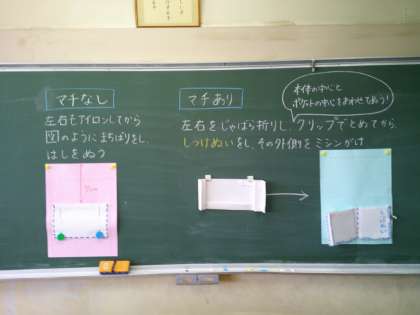 マチなし
左右をアイロンしてから
図のようにまちばりをし、
はしをぬう
マチあり
本体の中心と
ポケットの中心をあわせてぬう!
左右をじゃばら折りし、クリップでとめてから、
しつけぬいをし、その外側をミシンがけ